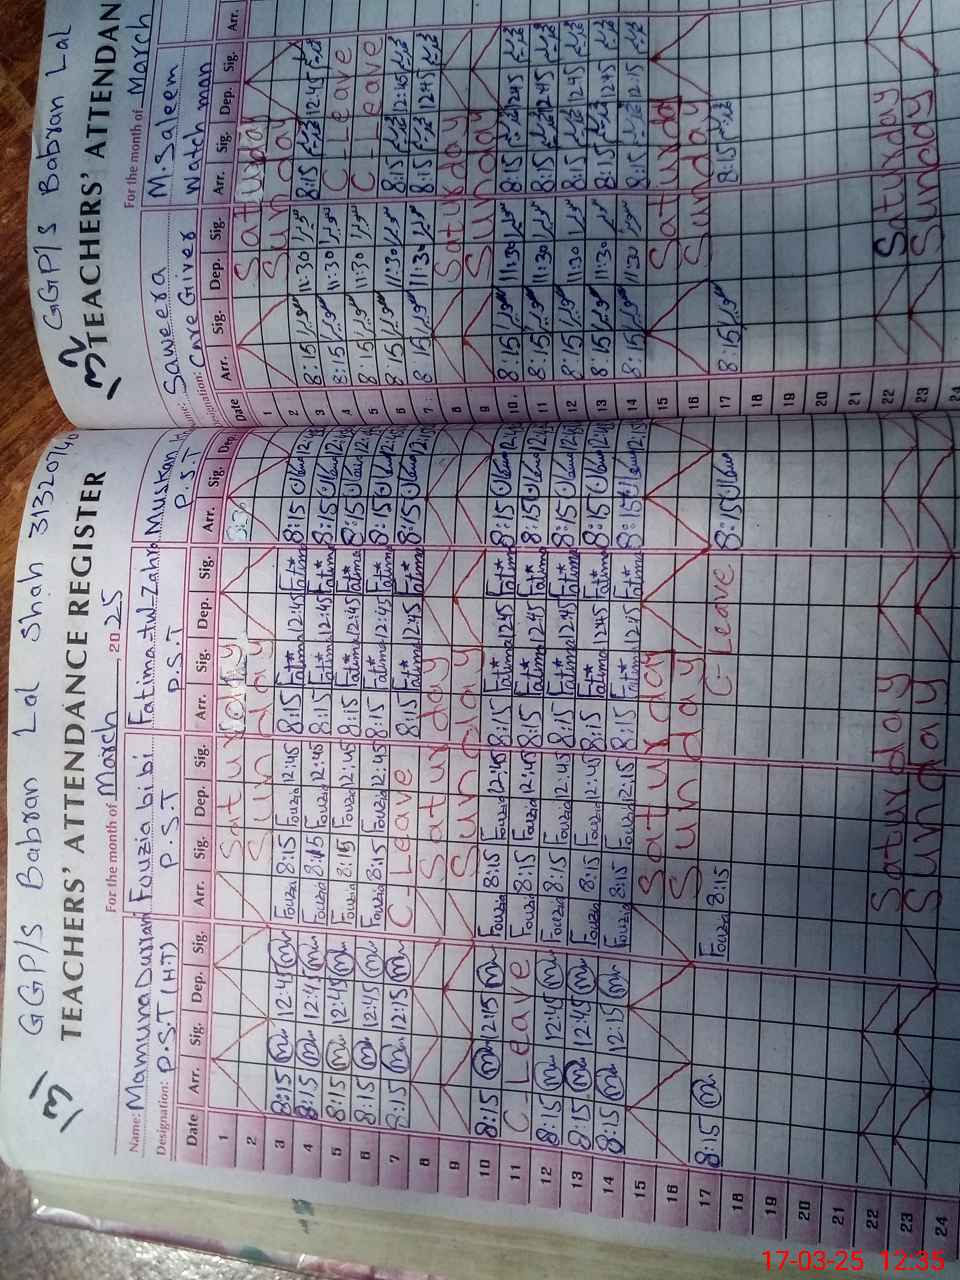 GGP/S Babran Lal Shah 31320740
TEACHERS' ATTENDANCE REGISTER
For the month of March, 2025
Name: Mamuna Durrani Fouzia bibi Fatima tul Zahra Muskan
Designation: P.S.T (H.T) P.S.T P.S.T P.S.T
Date Arr. Sig. Dep. Sig. Arr. Sig. Dep. Sig. Arr. Sig. Dep. Sig. Arr. Sig. Dep.
1 Saturday
2 Sunday
3 8:15 12:45 Fouzia 8:15 Fouzia 12:45 8:15 Fatima 12:45 Fatima 8:15
4 8:15 12:45 Fouzia 8:15 Fouzia 12:45 8:15 Fatima 12:45 Fatima 8:15
5 8:15 12:45 Fouzia 8:15 Fouzia 12:45 8:15 Fatima 12:45 Fatima 8:15
6 8:15 12:45 Fouzia 8:15 Fouzia 12:45 8:15 Fatima 12:45 Fatima 8:15
7 8:15 12:15 C - Leave 8:15 Fatima 12:45 Fatima 8:15
8 Saturday
9 Sunday
10 8:15 12:45 Fouzia 8:15 Fouzia 12:45 8:15 Fatima 12:45 Fatima 8:15
11 C - Leave Fouzia 8:15 Fouzia 12:45 8:15 Fatima 12:45 Fatima 8:15
12 8:15 12:45 Fouzia 8:15 Fouzia 12:45 8:15 Fatima 12:45 Fatima 8:15
13 8:15 12:45 Fouzia 8:15 Fouzia 12:45 8:15 Fatima 12:45 Fatima 8:15
14 8:15 12:15 Fouzia 8:15 Fouzia 12:15 8:15 Fatima 12:45 Fatima 8:15 12:15
15 Saturday
16 Sunday
17 8:15 Fouzia 8:15 C - Leave 8:15
18
19
20
21
22 Saturday
23 Sunday
24
GGP/S Babran Lal
TEACHERS' ATTENDAN
For the month of March
Name: Saweera M. Saleem
Designation: Care Giver Watch man
Date Arr. Sig. Dep. Sig. Arr. Sig. Dep. Sig. Arr.
1 Saturday
2 Sunday
3 8:15 11:30 8:15 12:45
4 8:15 11:30 C - Leave
5 8:15 11:30 C - Leave
6 8:15 11:30 8:15 12:45
7 8:15 11:30 8:15 12:45
8 Saturday
9 Sunday
10 8:15 11:30 8:15 12:45
11 8:15 11:30 8:15 12:45
12 8:15 11:30 8:15 12:45
13 8:15 11:30 8:15 12:45
14 8:15 11:30 8:15 12:15
15 Saturday
16 Sunday
17 8:15 8:15
18
19
20
21
22 Saturday
23 Sunday
24
17-03-25 12:35